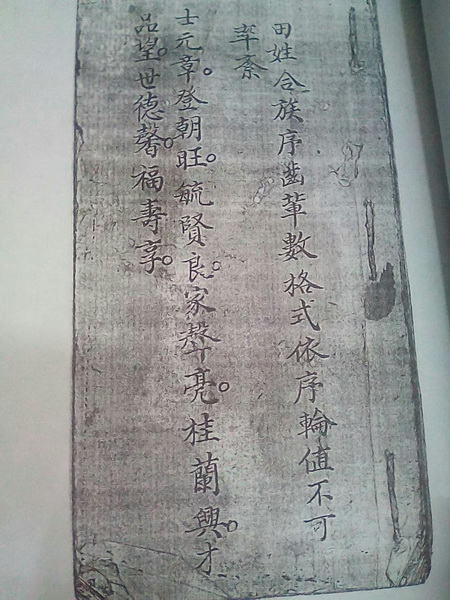 田姓合族序齒輩數格式依序輪值不可
牽紊
士元章。登朝旺。毓賢良。家聲亮。桂蘭興。才
品望。世德馨。福壽享。